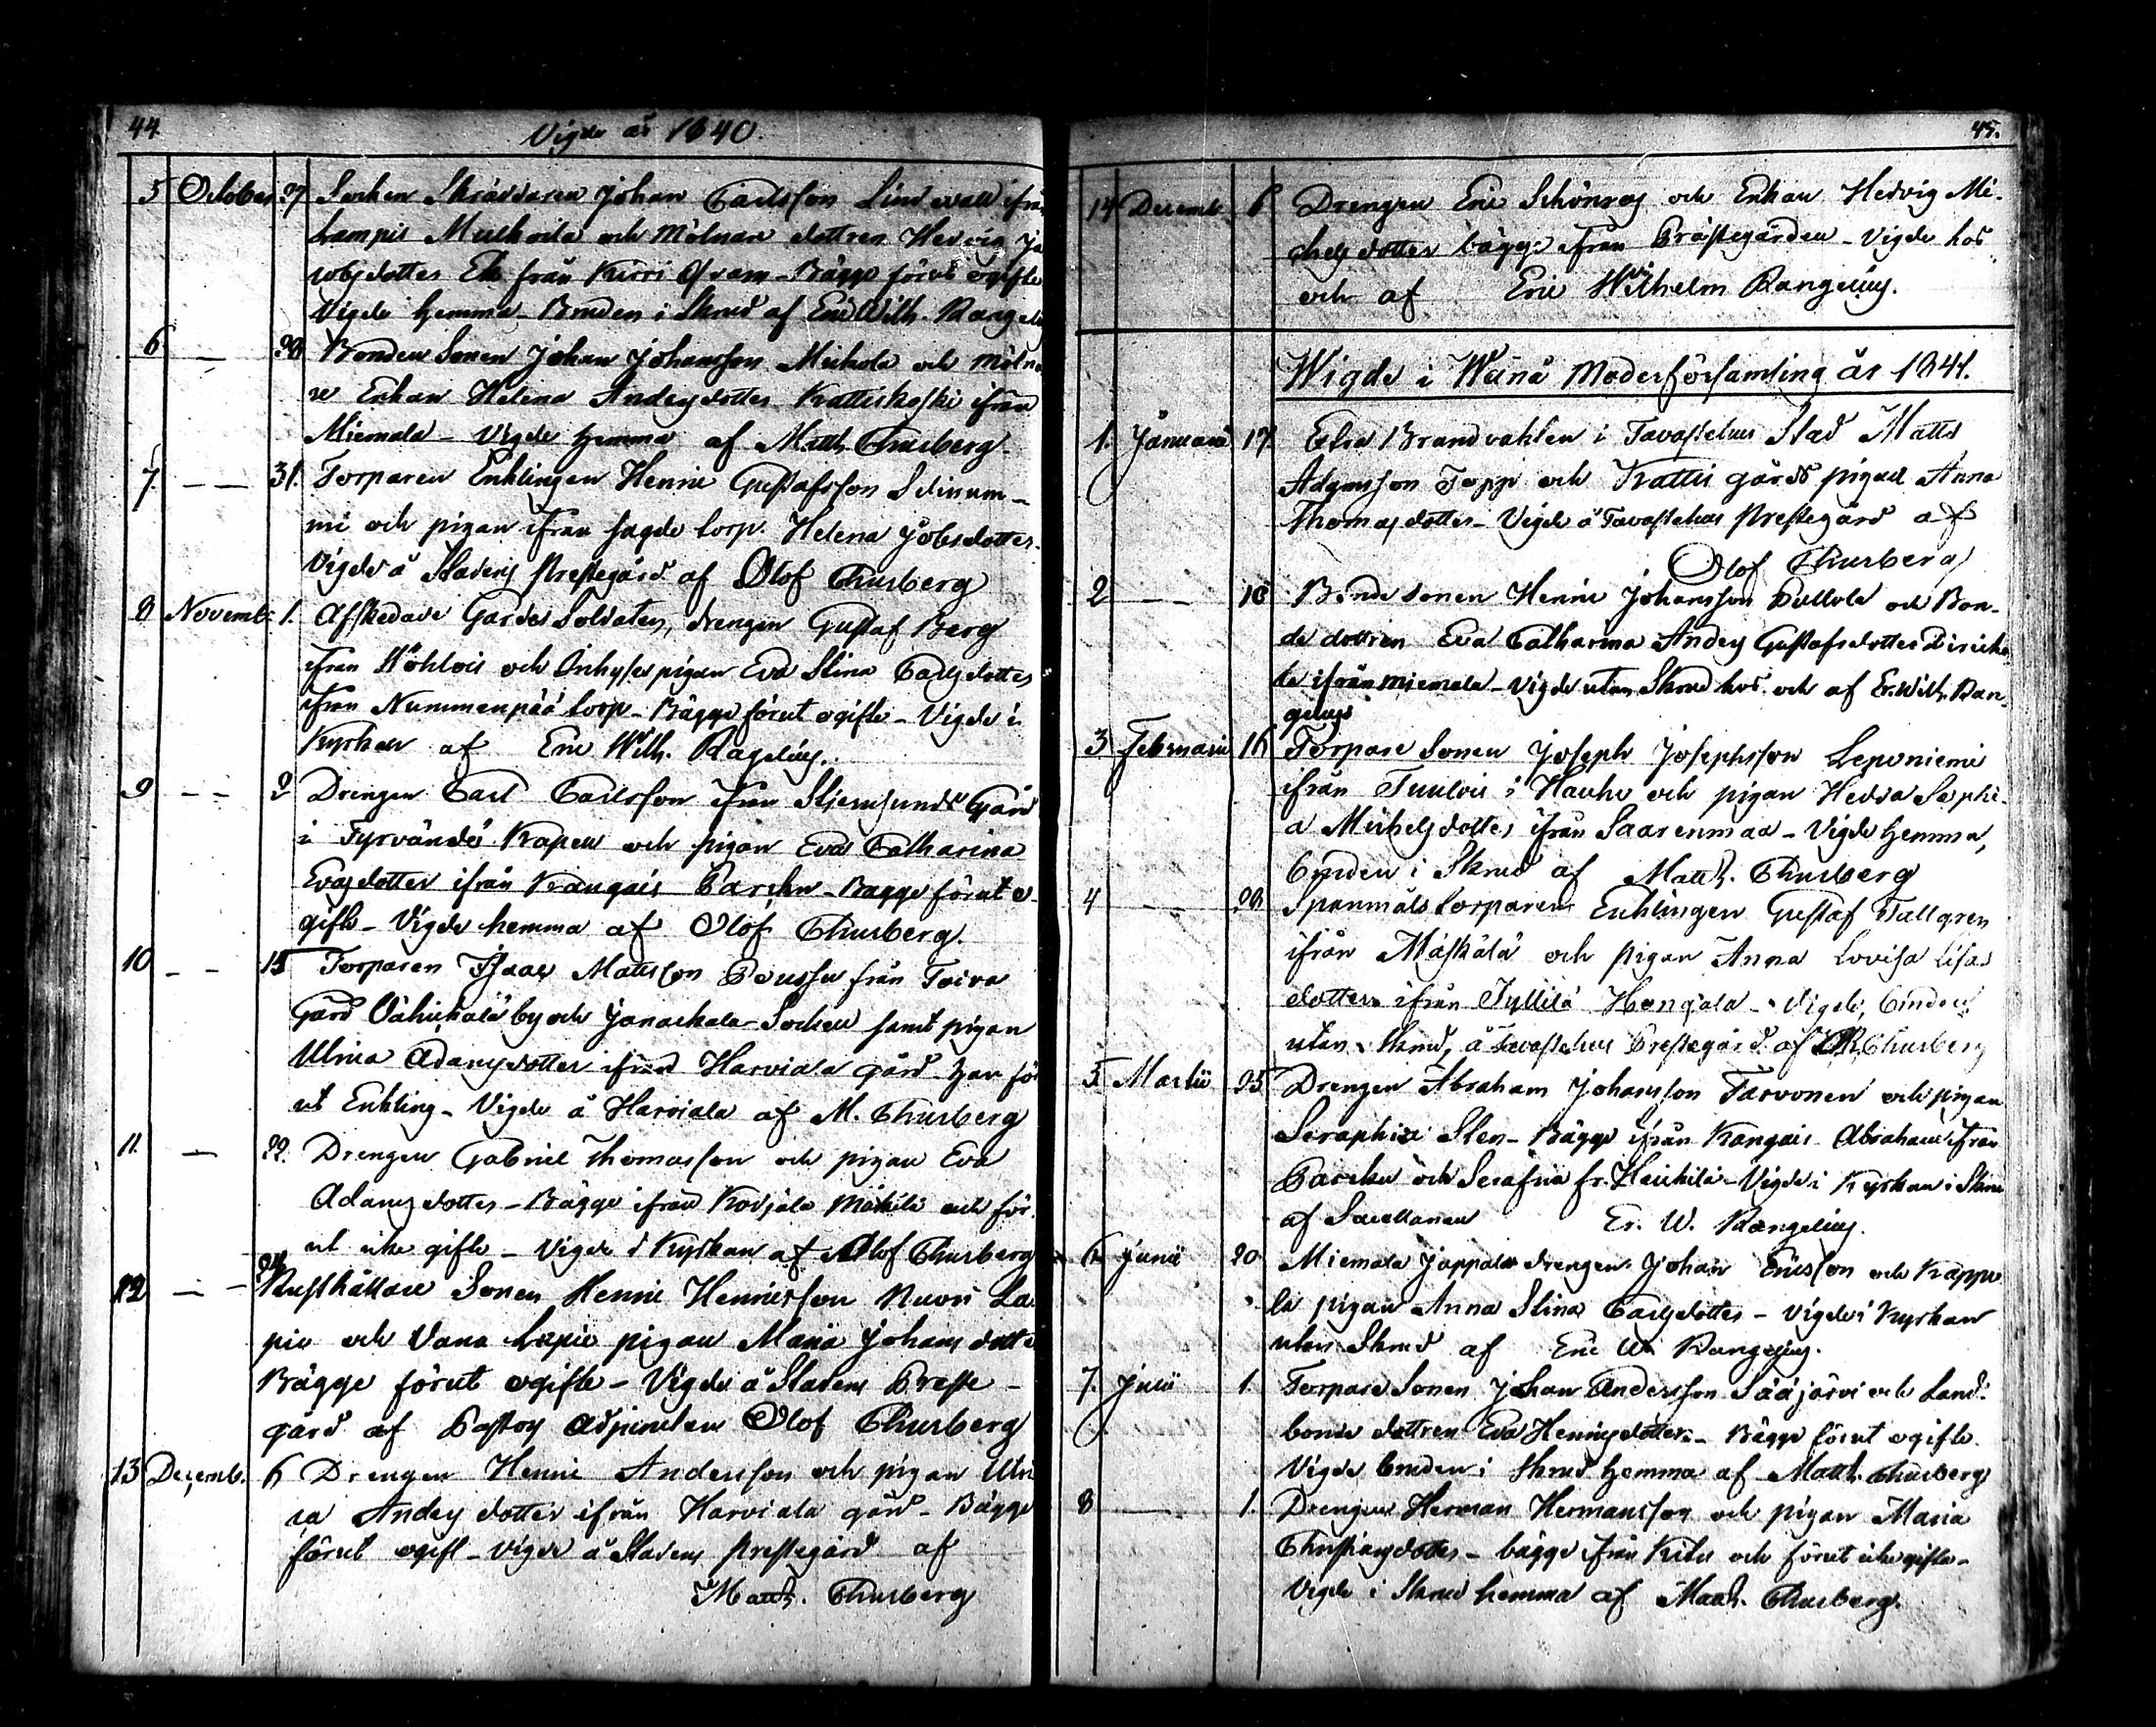 44.
Vigde år 1840.
5 October 27 Socken Skräddaren Johan Carlsson Lindvall ifrån
Lampis Muckoila och Mölnare dottren Hedvig Ja
cobsdotter Ek från Kirri Qvarn - Bägge förut ogifte
Vigde hemma - Bruden i Skrud af Eric Wilh. Rangeli
6 — 28 Bonden Sonen Johan Johansson Muckola och Mölna
re Enkan Helena Andersdotter Kattiskoski ifrån
Miemala - Vigde hemma af Matth. Thusberg
7. — — 31. Torparen Enklingen Henric Gustafsson
mi och pigan ifrån sagde torp. Helena Jobsdotter.
Vigde å Stadens Prestegård af Olof Thusberg
8 Novemb. 1. Afskedade Gardes Soldaten, drengen Gustaf Berg
ifrån Wöhlois och Inhyses pigan Eva Stina Carlsdotter
ifrån Nummenpää torp - Bägge förut ogifte - Vigde i
Kyrkan af Eric Wilh. Ragelius.
9 — — 2 Drengen Carl Carlsson ifrån Stjernsunds Gård
i Tyrvändö Kapell och pigan Eva Catharina
Evasdotter ifrån Kangais Parcku - Bägge förut o-
gifte - Vigde hemma af Olof Thusberg.
10 — — 15 Torparen Isaac Mattsson Poussu från Toiva
Gård Vähickälä by och Janackala Socken samt pigan
Ulrica Adamsdotter ifrån Harviala gård - han för
ut Enkling - Vigde å Harviala af M. Thusberg
11. — 22. Drengen Gabriel Thomasson och pigan Eva
Adamsdotter - Bägge ifrån Kovjala Mäkilä och för
ut icke gifte - Vigde i Kyrkan af Olof Thusberg
12 — — 24 Rusthållare Sonen Henric Henricsson Nuori La
pio och Vana Lapio pigan Maria Johansdotte
Bägge förut ogifte - Vigde å Stadens Preste -
gård af Pastors Adjuncten Olof Thusberg
13 Decemb. 6 Drengen Henric Andersson och pigan Ulri
ca Andersdotter ifrån Harviala gård - Bägge
förut ogift - Vigde å Stadens Prestegård af
Matth. Thusberg
45.
14 Decemb. 6 Drengen Eric Schönrog och Enkan Hedvig Mi-
chelsdotter bägge ifrån Prästegården - Vigde hos
och af Eric Wilhelm Rangelius.
Wigde i Wånå Moderförsamling år 1841.
1. Januarii 17 Extra Brandvakten i Tavastehus Stad Matts
Adamsson Toppi och Kattis gårds pigan Anna
Thomasdotter - Vigde å Tavastehus Prestegård af
Olof Thusberg
2 — — 18 Bondesonen Henric Johansson Pullola och Bon-
de dottren Eva Catharina Anders Gustafsdotter
la ifrån Miemala - Vigde utan Skrud hos och af Er. Wilh. Ran-
gelius
3 Februarii 16 Torpare Sonen Joseph Josephsson Leponiemi
ifrån Tuulois i Hauho och pigan Hedda Sophi-
a Michelsdotter ifrån Saarenmaa - Vigde hemma,
bruden i Skrud af Matth. Thusberg
4 — 28 Spanmåls torparen Enklingen Gustaf Tallgren
ifrån Mäskälä och pigan Anna Lovisa Lisas
dotter ifrån Jyllilä Hangala - Vigde, bruden
utan Skrud, å Tavastehus Prestegård af M. Thusberg
5. Martii 25 Drengen Abraham Johansson Tarvonen och pigan
Seraphia Sten - Bägge ifrån Kangais - Abraham ifrån
Parcku och Serafia fr. Heickilä - Vigde i Kyrkan i Skru
af Sacellanen Er. W. Rangelius.
6 Junii 20 Miemala Jappala drengen Johan Ericsson och Kappo
la pigan Anna Stina Carlsdotter - Vigde i Kyrkan
utan Skrud af Eric W. Rangelius.
7. Julii 1. Torpare Sonen Johan Andersson Sääjärvi och Land-
bonde dottren Eva Henricsdotter - Bägge förut ogifte.
Vigde bruden i Skrud hemma af Matth. Thusberg
8 — 1. Drengen Herman Hermansson och pigan Maria
Christiansdotter - bägge ifrån Kitu och förut icke gifte -
Vigde i Skrud hemma af Matth. Thusberg.